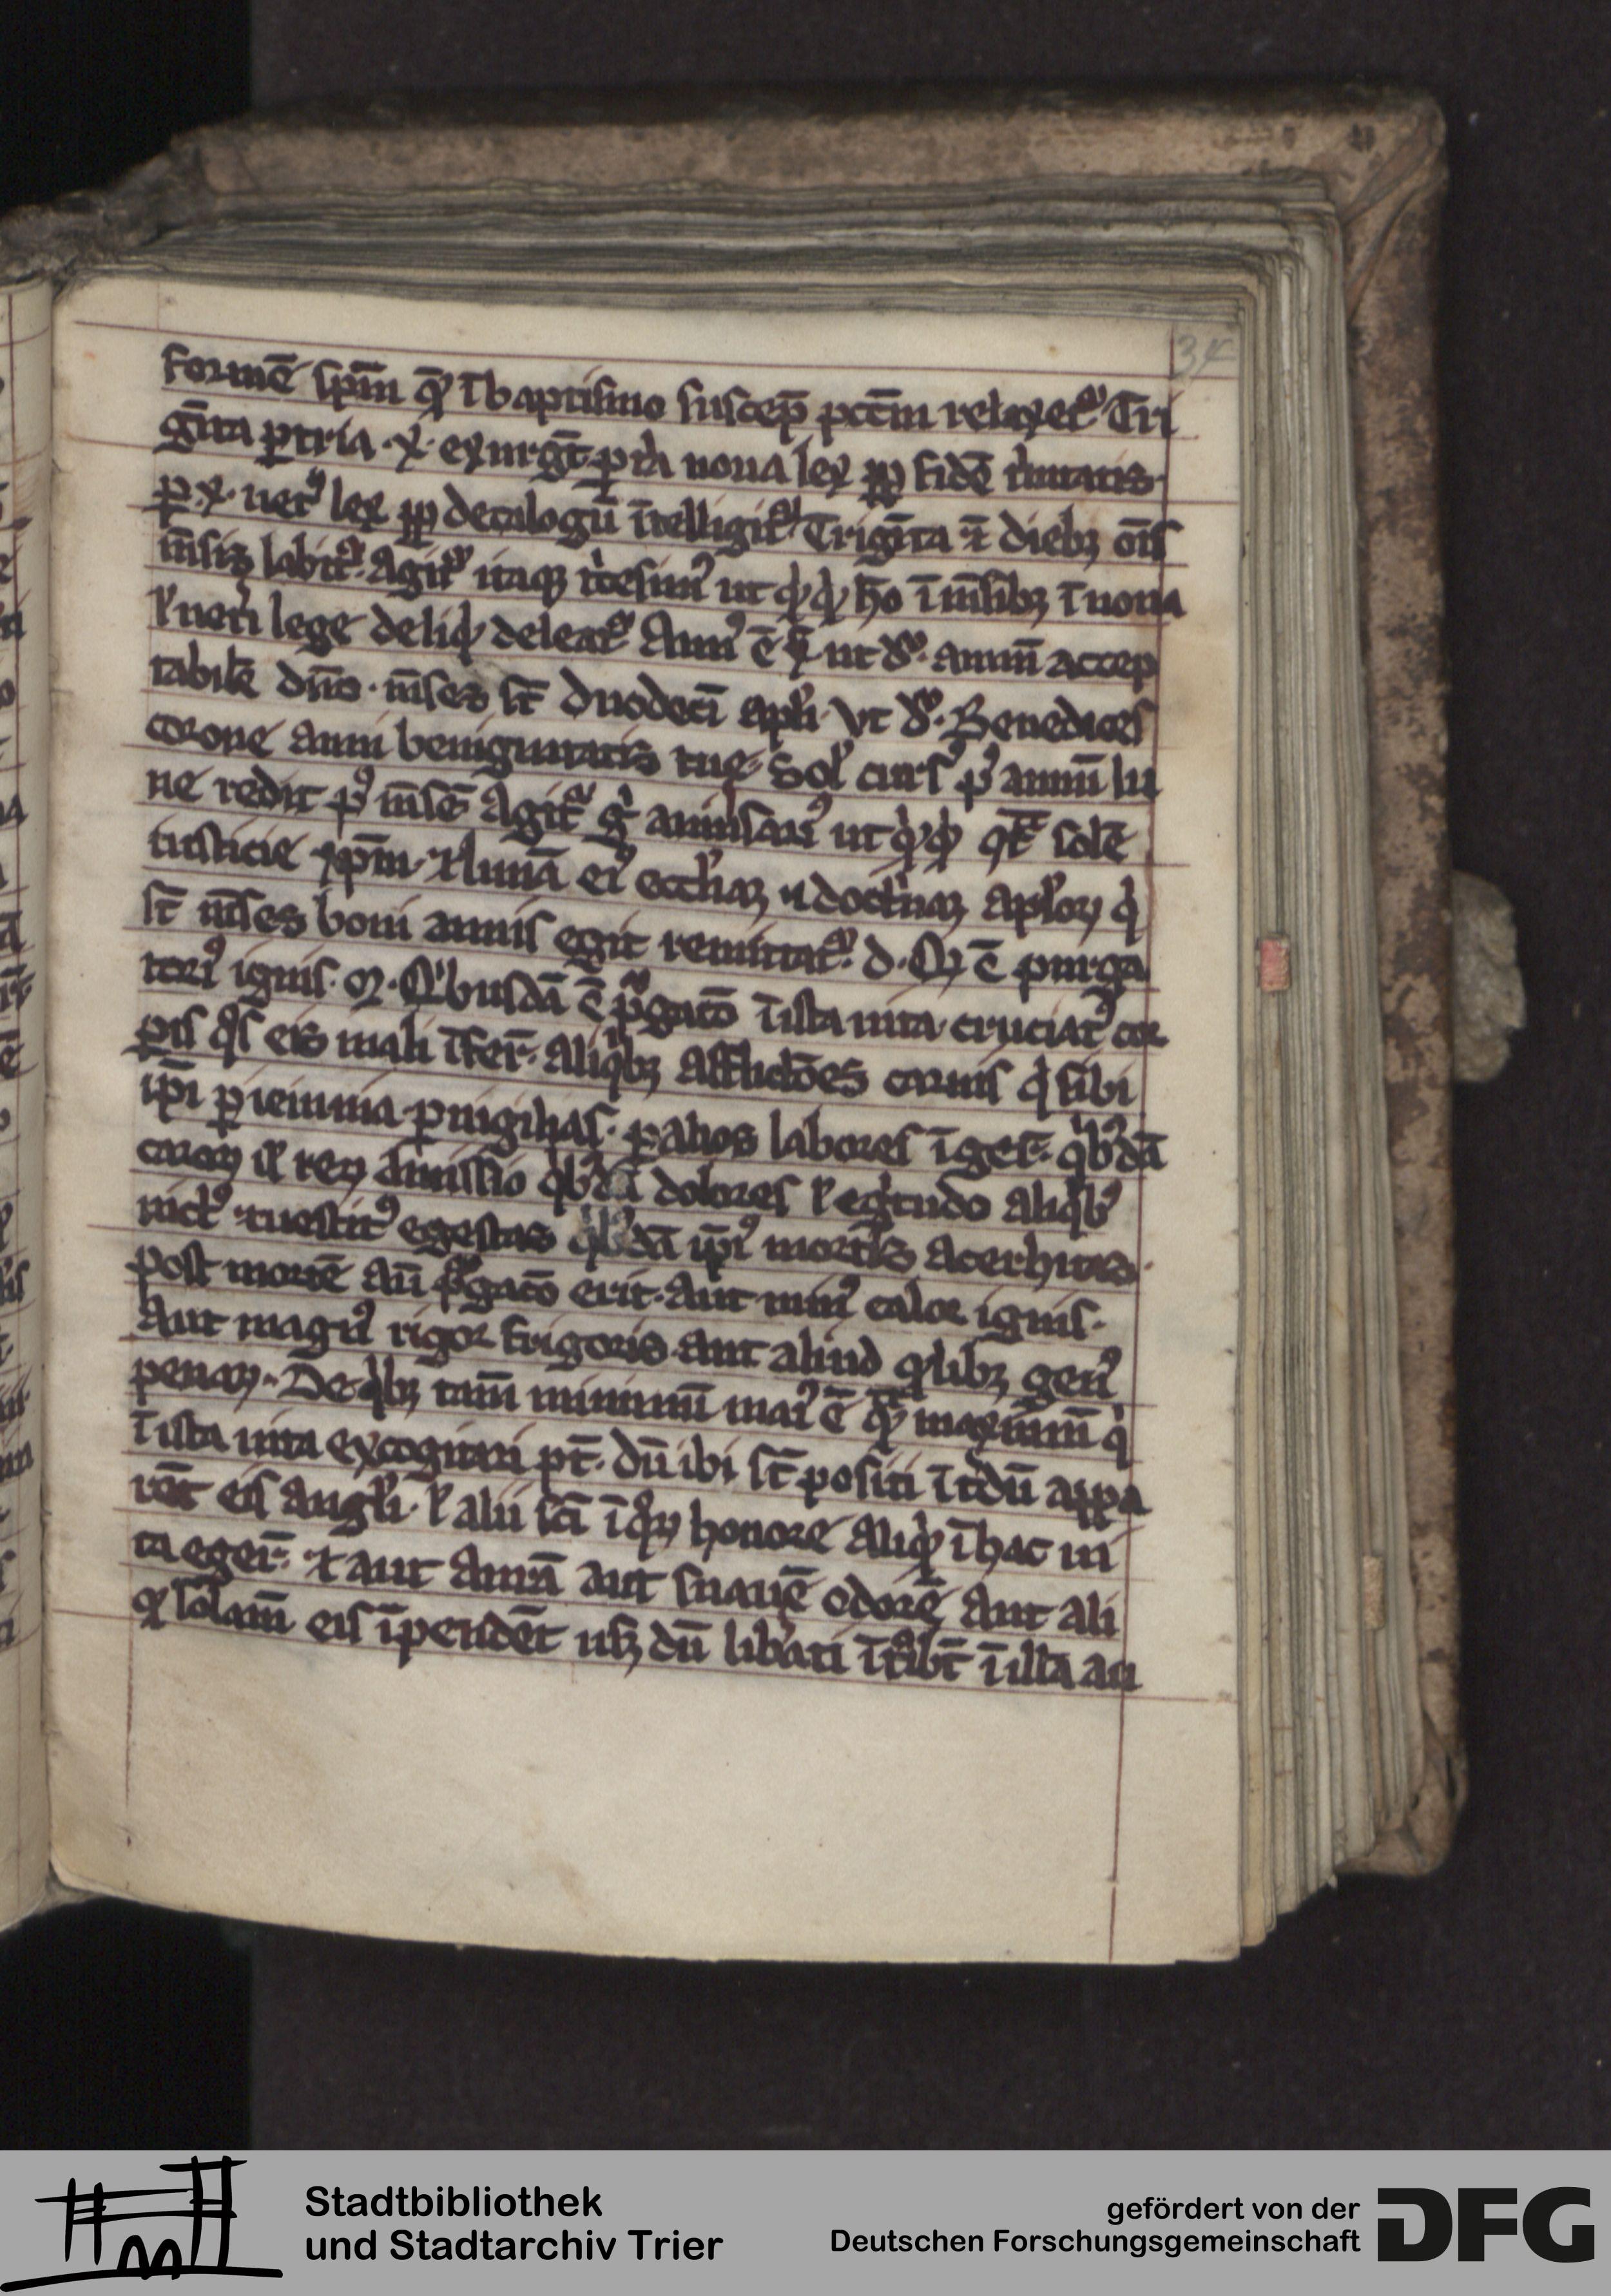 34
formē sp̄m q̄ ī baptismo suscep̄ pcc̄m relaxet᷑ Tri
gīta p̱ tria · x · exurḡt p̱ tͥa noua lex p̱p̱ fidē tͥnitatis ·
p̱ · x · uetꝰ lex p̱p̱ decalogū ītelligit᷑ Trigīta ⁊̄ diebꝫ oīs
m̄sis labit᷑ · Agit᷑ itaqꝫ tͥcesimꝰ ut qͥcqͥd ho ī m̄sibꝫ ī noua
ł ueti lege deliqͥ deleat᷑ Annꝰ ē x̄ ut dꝛ · annū accep
tabilē dn̄o · m̄ses st̄ duodecī apłi · Vt dꝛ · Benedices
corone anni benignitatis tue · Sol̕ cursꝰ p̱ annū lu
ne redit p̱ m̄sē Agit᷑ gͦ aniūsariꝰ ut qͥcqͥd qt̄ solē
iusticie xp̄m · ⁊ lunā eiꝰ eccl̕iaꝫ ⁊ doctͥnaꝫ apl̕oꝝ qͥ
st̄ m̄ses boni annis egit remittat᷑ · d · Qͥd ē purga
toriꝰ ignis · M · Qͥbusdā ē p᷑gatō ī ista uita cruciatꝰ cor
pis qͦs eis mali īfer̄ · aliqͥbꝫ afflictōes carnis qͥ sibi
ip̄i p̱ ieiunia p̱uigilias · p̱ alios labores īger̄ · qͥbꝰdā
caroꝝ ł reꝝ amissio qͥbꝰdā dolores ł egͥtudo aliqͥbꝰ
uictꝰ ⁊ uestitꝰ egestas qͥbꝰdā ip̄iꝰ mortis acerbitas ·
post mortē aū p᷑gatō erit · aut nimiꝰ calor ignis ·
Aut magnꝰ rigor frigoris · aut aliud qͦdlibꝫ genꝰ
penaꝝ · De qͥbꝫ tam̄ minimū maiꝰ ē qͣ maximū qͥ
ī ista uita excogitari pt̄ · dū ibi st̄ positi īt̕dū appa
rēt eis angl̕i · ł alii sc̄i ī qͦꝝ honore aliqͥd ī hac ui
ta eger̄ · ⁊ aut aurā aut suauē odorē aut ali
qͦd solam̄ eis īpendēt usqꝫ dū lib̕ati ītͣbt̄ ī illa au
Stadtbibliothek
und Stadtarchiv Trier
gefördert von der
Deutschen Forschungsgemeinschaft
DFG